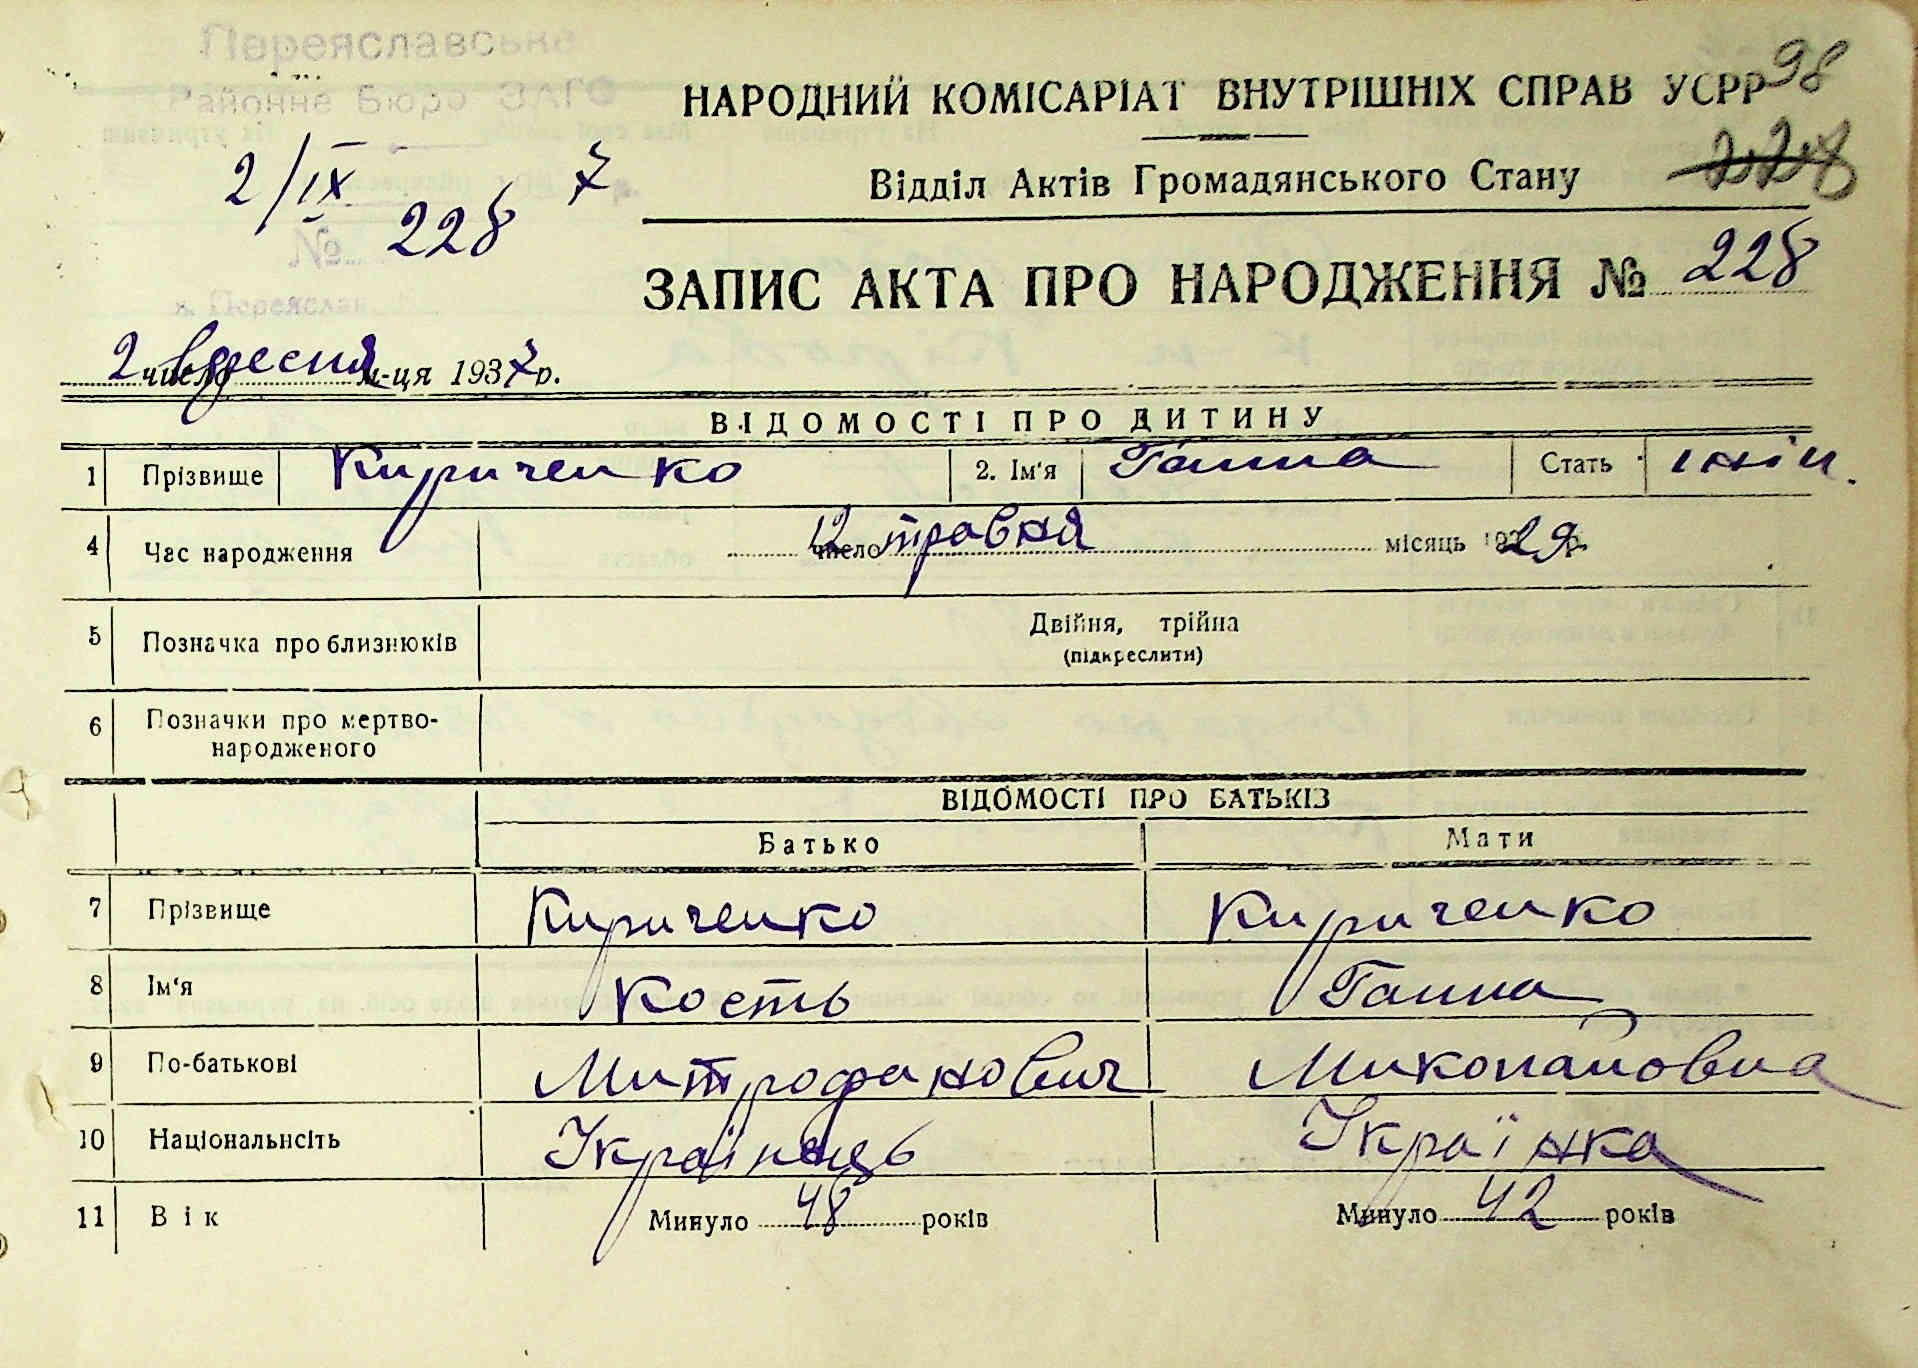 Переяславське
98
Районне Бюро ЗАГС
НАРОДНИЙ КОМІСАРІАТ ВНУТРІШНІХ СПРАВ УСРР
228
2/IX 7 р.
Відділ Актів Громадянського Стану
№ 228
ЗАПИС АКТА ПРО НАРОДЖЕННЯ № 228
м. Переяслав
2 число вересня м-ця 1937 р.
ВІДОМОСТІ ПРО ДИТИНУ
1 Прізвище Кириченко 2. Ім'я Ганна Стать жін.
4 Час народження 12 число травня місяць 1929 р.
5 Позначка про близнюків Двійня, трійна
(підкреслити)
6 Позначки про мертво-
народженого
ВІДОМОСТІ ПРО БАТЬКІВ
Батько Мати
7 Прізвище Кириченко Кириченко
8 Ім'я Кость Ганна
9 По-батькові Митрофанович Миколайовна
10 Національність Українець Українка
11 Вік Минуло 48 років Минуло 42 років